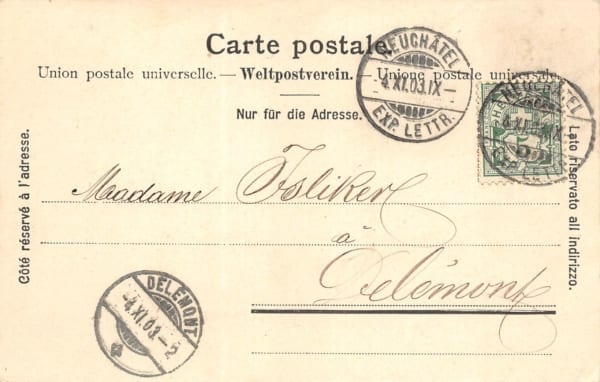 Carte postale.
Union postale universelle. — Weltpostverein. — Unione postale universale.
Nur für die Adresse.
Côté réservé à l'adresse.
Lato riservato all indirizzo.
NEUCHÂTEL
-4.XI.03.IX-
EXP. LETTR.
NEUCHÂTEL
Madame Isliker
à
Delémont
DELÉMONT
-4.XI.03.-2